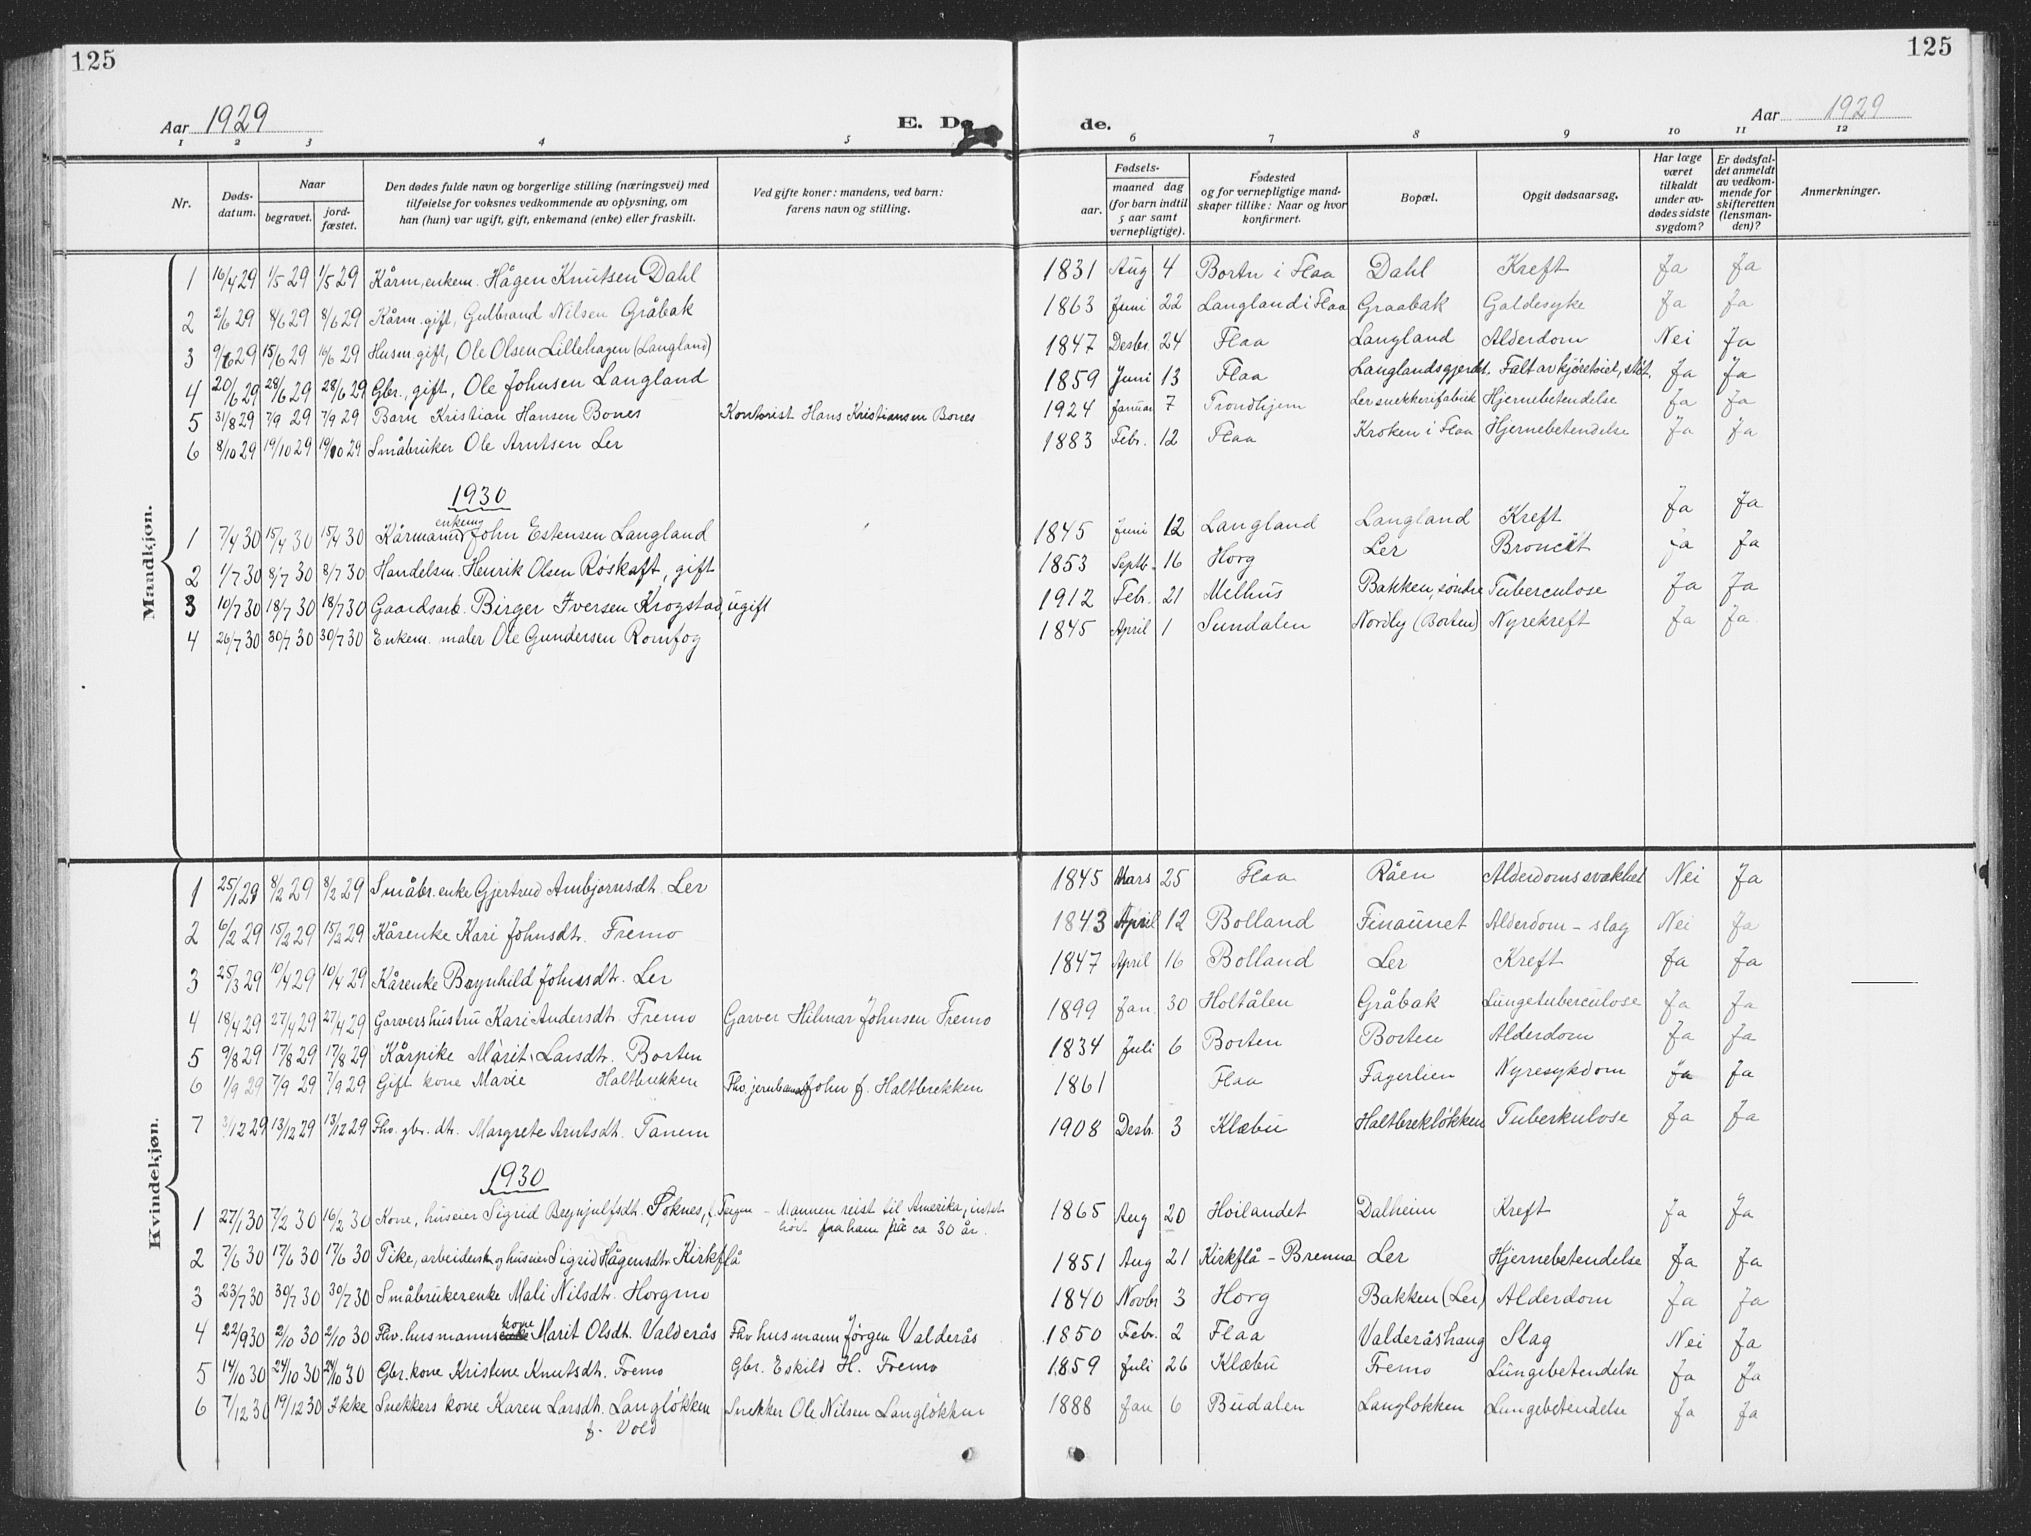 125
125
Aar 1929
E. Dø
de.
Aar 1929
1 2 3 4 5 6 7 8 9 10 11 12
Nr.
Døds-
datum.
Naar
begravet.
jord-
fæstet.
Den dødes fulde navn og borgerlige stilling (næringsvei) med
tilføielse for voksnes vedkommende av oplysning, om
han (hun) var ugift, gift, enkemand (enke) eller fraskilt.
Ved gifte koner: mandens, ved barn:
farens navn og stilling.
Fødsels-
aar.
maaned dag
(for barn indtil
5 aar samt
vernepligtige).
Fødested
og for vernepligtige mand-
skaper tillike: Naar og hvor
konfirmert.
Bopæl.
Opgit dødsaarsag.
Har læge
været
tilkaldt
under av-
dødes sidste
sygdom?
Er dødsfal-
det anmeldt
av vedkom-
mende for
skifteretten
(lensman-
den)?
Anmerkninger.
Mandkjøn.
1 16/4 29 1/5 29 1/5 29 Kårm, enkem. Hågen Knutsen Dahl 1831 Aug 4 Bortn i Flaa Dahl Kreft Ja Ja
2 2/6 29 8/6 29 8/6 29 Kårm. gift, Gulbrand Nilsen Gråbak 1863 Juni 22 Langland i Flaa Graabak Galdesyke Ja Ja
3 9/6 29 15/6 29 16/6 29 Husm. gift, Ole Olsen Lillehagen (Langland) 1847 Desbr. 24 Flaa Langland Alderdom Nei Ja
4 20/6 29 28/6 29 28/6 29 Gbr., gift, Ole Johnsen Langland 1859 Juni 13 Flaa Langlandsgjerdet. Falt av kjøretøiet, støt. Ja Ja
5 31/8 29 7/9 29 7/9 29 Barn Kristian Hansen Bones Kontorist Hans Kristiansen Bones 1924 Januar 7 Trondhjem Ler snekkerifabrik Hjernebetendelse Ja Ja
6 8/10 29 19/10 29 19/10 29 Småbruker Ole Arntsen Ler 1883 Febr. 12 Flaa Kroken i Flaa Hjernebetendelse Ja Ja
1930
1 7/4 30 15/4 30 15/4 30 Kårmann enkem John Estensen Langland 1845 Juni 12 Langland Langland Kreft Ja Ja
2 1/7 30 8/7 30 8/7 30 Handelsm. Henrik Olsen Røskaft, gift 1853 Septb. 16 Horg Ler Broncit Ja Ja
3 10/7 30 18/7 30 18/7 30 Gaardsarb. Birger Iversen Krogstad, ugift 1912 Febr. 21 Melhus Bakken, søndre Tuberculose Ja Ja
4 26/7 30 30/7 30 30/7 30 Enkem. maler Ole Gundersen Romfog 1845 April 1 Sundalen Nordly (Borten) Nyrekreft Ja Ja.
Kvindekjøn.
1 25/1 29 8/2 29 8/2 29 Småbr. enke Gjertrud Arnbjørnsdt. Ler 1845 Mars 25 Flaa Råen Alderdomssvakhet Nei Ja
2 6/2 29 15/2 29 15/2 29 Kårenke Kari Johnsdt. Fremo 1843 April 12 Bolland Finaunet Alderdom - slag Nei Ja
3 25/3 29 10/4 29 10/4 29 Kårenke Brynhild Johnsdt. Ler 1847 April 16 Bolland Ler Kreft Ja Ja
4 18/4 29 27/4 29 27/4 29 Garvershustru Kari Andersdt. Fremo Garver Hilmar Johnsen Fremo 1899 Jan. 30 Holtålen Gråbak Lungetuberculose Ja Ja
5 9/8 29 17/8 29 17/8 29 Kårpike Mårit Larsdtr. Borten 1834 Juli 6 Borten Borten Alderdom Ja Ja
6 1/9 29 7/9 29 7/9 29 Gift kone Marie Haltbrekken Fhv. jernbanearb John J. Haltbrekken 1861 Flaa Fagerlien Nyresykdom Ja Ja
7 3/12 29 13/12 29 13/12 29 Fhv. gbr. dtr. Margrete Arntsdt. Tanem 1908 Desbr. 3 Klæbu Haltbrekløkken Tuberkulose Ja Ja
1930
1 27/1 30 7/2 30 16/2 30 Kone, huseier Sigrid Brynjulfsdt. Soknes, f. Teigen - Mannen reist til Amerika, intet
hørt fra ham på ca 30 år. 1865 Aug 20 Høilandet Dalheim Kreft Ja Ja
2 7/6 30 17/6 30 17/6 30 Pike, arbeidersk og huseier Sigrid Hågensdtr. Kirkflå 1851 Aug 21 Kirkflå - Brenna Ler Hjernebetendelse Ja Ja
3 23/7 30 30/7 30 30/7 30 Småbrukerenke Mali Nilsdtr. Horgmo 1840 Novbr 3 Horg Bakken (Ler) Alderdom Ja Ja
4 22/9 30 2/10 30 2/10 30 Fhv. husmanns kone Marit Olsdt. Valderås Fhv husmann Jørgen Valderås 1850 Febr. 2 Flaa Valderåshaug Slag Nei Ja
5 14/10 30 24/10 30 24/10 30 Gbr. kone Kristine Knutsdtr. Fremo Gbr. Eskild H. Fremo 1859 Juli 26 Klæbu Fremo Lungebetendelse Ja Ja
6 7/12 30 19/12 30 Ikke Snekkers kone Karen Larsdtr. Langløkken
f. Vold Snekker Ole Nilsen Langløkken 1888 Jan 6 Budalen Langløkken Lungebetendelse Ja Ja